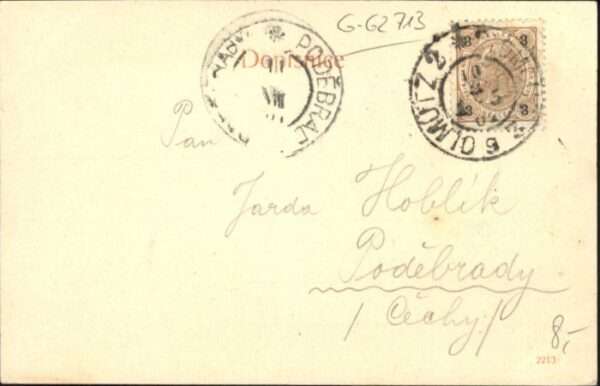 G-G2713
Dopisnice
PODĚBRAD
OLMÜTZ 2
3 3
3 3
Pan
Jarda Hoblík
Poděbrady
/Čechy/
8,-
2213